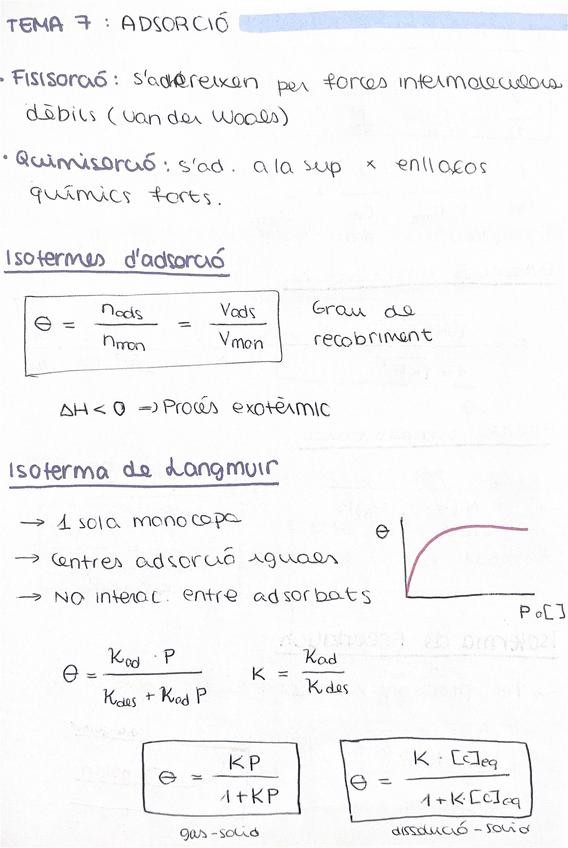 TEMA 7 : ADSORCIÓ
· FISISORCIÓ : s'adhereixen per forces intermoleculars
dèbils (van der Waals)
· Quimisorció : s'ad. a la sup × enllaços
químics forts.
Isotermes d'adsorció
θ = n_ads / n_mon = V_ads / V_mon Grau de
recobriment
ΔH < 0 => Procés exotèrmic
Isoterma de Langmuir
→ 1 sola monocapa
→ Centres adsorció iguales
→ No interac. entre adsorbats
θ
P o [ ]
θ = K_ad · P / K_des + K_ad P K = K_ad / K_des
θ = KP / 1+KP θ = K · [C]eq / 1+K·[C]eq
gas-solid dissolució-solid